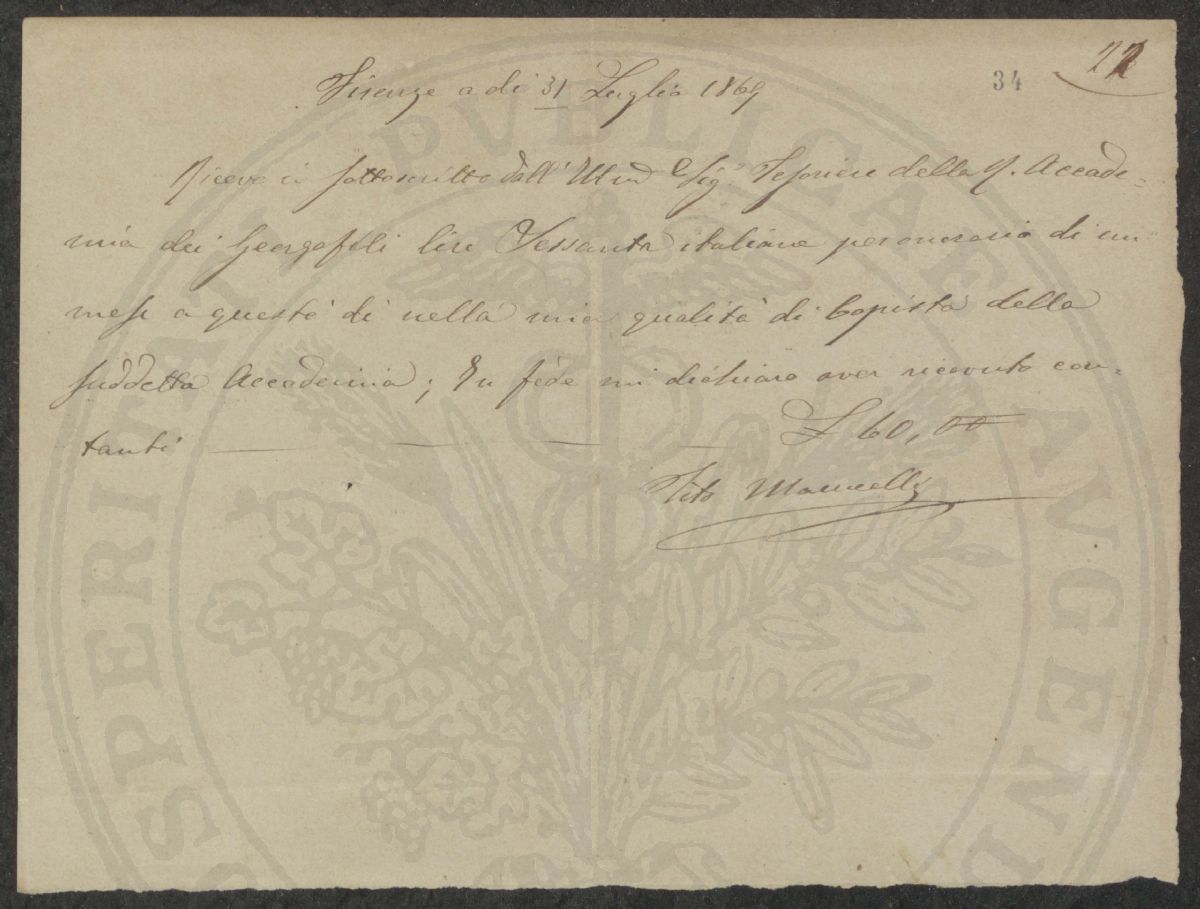 22
34
Firenze a di 31 Luglio 1869
Ricevo io sottoscritto dall' Sig.e Tesoriere della R. Accade=
mia dei Georgofili lire Sessanta italiane per onorario di un
mese a questo dì nella mia qualità di Copista della
suddetta Accademia; In fede mi dichiaro aver ricevuto con=
tanti
£ 60,00
Tito
PROSPERITATI PVBLICAE AVGENDAE